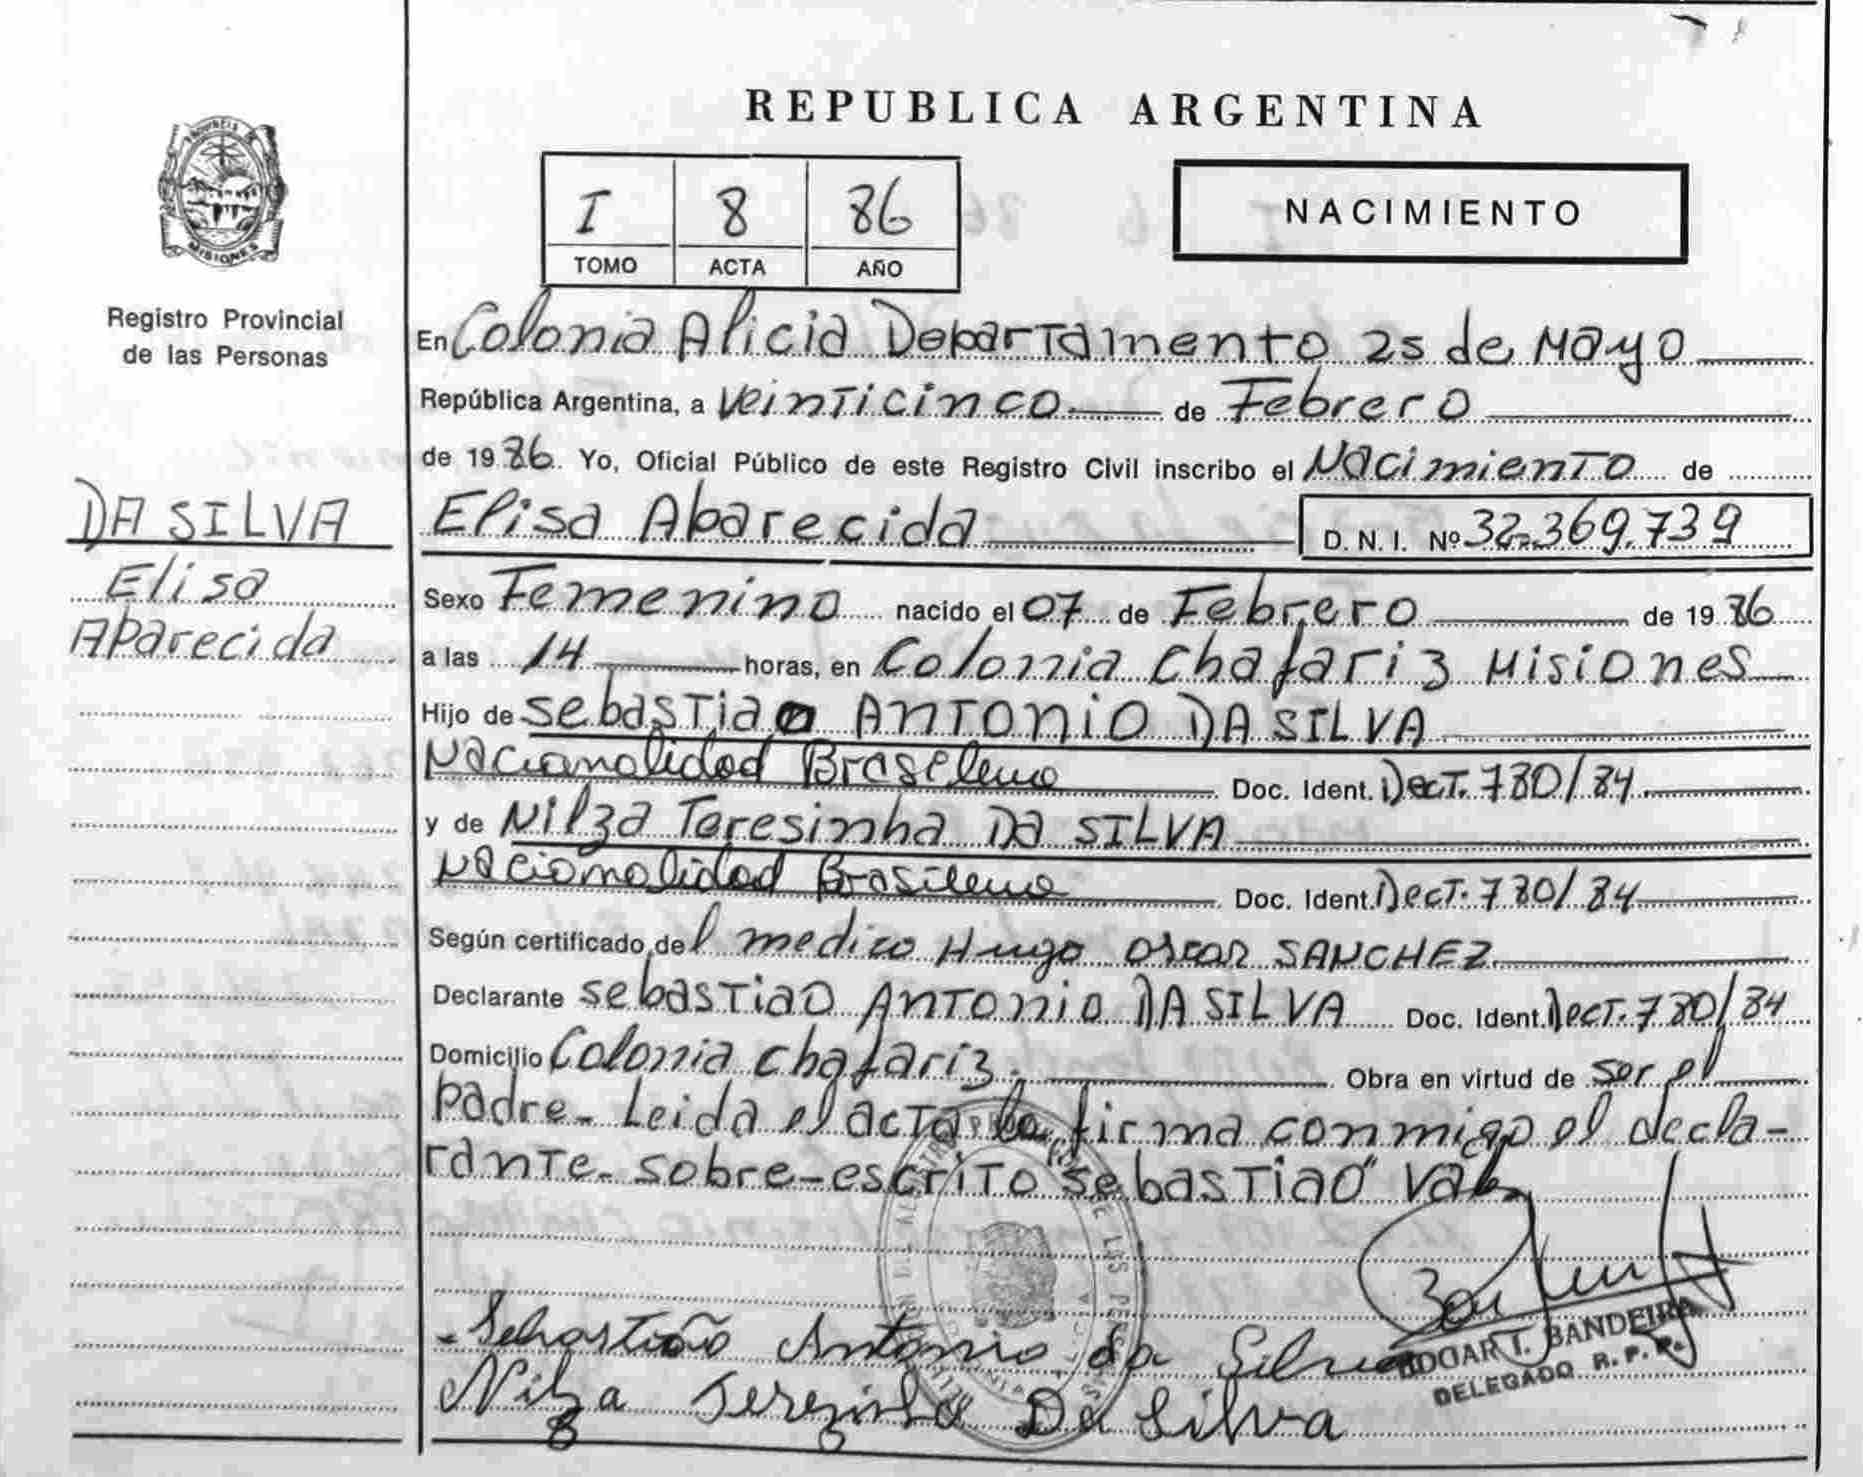 REPUBLICA ARGENTINA
MISIONES
Registro Provincial
de las Personas
I 8 86
TOMO ACTA AÑO
NACIMIENTO
En Colonia Alicia Departamento 25 de Mayo
República Argentina, a veinticinco de Febrero
de 1986. Yo, Oficial Público de este Registro Civil inscribo el Nacimiento de
DA SILVA
Elisa Aparecida
Elisa Aparecida
D. N. I. Nº 32.369.739
Sexo Femenino nacido el 07 de Febrero de 1986
a las 14 horas, en Colonia Chafariz Misiones
Hijo de Sebastiao ANTONIO DA SILVA
Nacionalidad Braseleno Doc. Ident. Dect. 780/84
y de Nilza Teresinha DA SILVA
Nacionalidad Brasileno Doc. Ident. Dect. 780/84
Según certificado del medico Hugo Oscar SANCHEZ
Declarante Sebastiao ANTONIO DA SILVA Doc. Ident. Dect. 780/84
Domicilio Colonia Chafariz. Obra en virtud de ser el
padre_ Leida el acta la firma conmigo el decla-
rante_ sobre-escrito "Sebastiao" Vale
Sebastião Antonio da Silva
Nilza Terezinha Da Silva
EDGAR T. BANDEIRA
DELEGADO R. P. P.